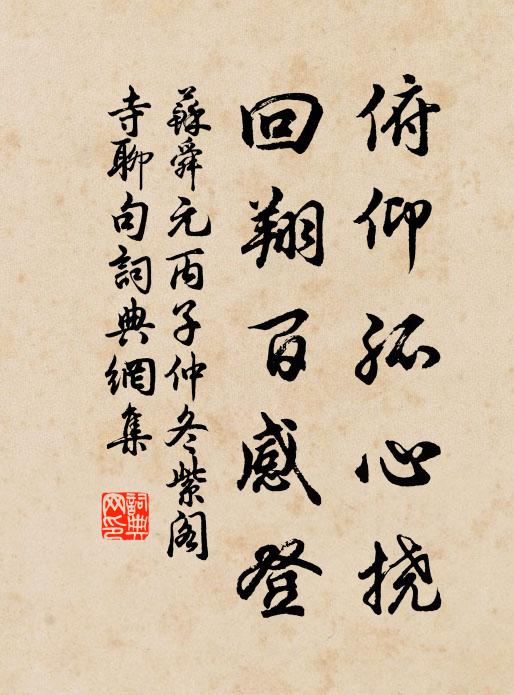 俯仰孤心挠
回翔百感登
蘇舜元丙子仲冬紫阁
寺聊句詞典網集
詞典网印